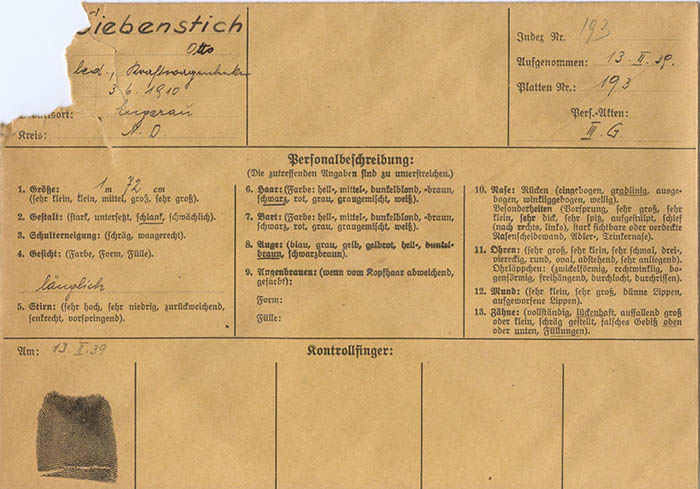 Siebenstich
Otto
led., Kraftwagenlenker
3 6. 1910
Engerau
Kreis: N. D.
Index Nr. 193
Aufgenommen: 13. II. 39.
Platten Nr.: 193
Pers.-Akten:
III. G.
Personalbeschreibung:
(Die zutreffenden Angaben sind zu unterstreichen.)
1. Größe: 1 m 72 cm
(sehr klein, klein, mittel, groß, sehr groß).
2. Gestalt: (stark, untersetzt, schlank, schwächlich).
3. Schulterneigung: (schräg, waagerecht).
4. Gesicht: (Farbe, Form, Fülle).
länglich
5. Stirn: (sehr hoch, sehr niedrig, zurückweichend,
senkrecht, vorspringend).
6. Haar: (Farbe: hell-, mittel-, dunkelblond, -braun,
schwarz, rot, grau, graugemischt, weiß).
7. Bart: (Farbe: hell-, mittel-, dunkelblond, -braun,
schwarz, rot, grau, graugemischt, weiß).
8. Auge: (blau, grau, gelb, gelbrot, hell-, dunkel-
braun, schwarzbraun).
9. Augenbrauen: (wenn vom Kopfhaar abweichend,
gefärbt):
Form:
Fülle:
10. Nase: Rücken (eingebogen, gradlinig, ausge-
bogen, winkliggebogen, wellig).
Besonderheiten (Vorsprung, sehr groß, sehr
klein, sehr dick, sehr spitz, aufgestülpt, schief
(nach rechts, links), stark sichtbare oder verdeckte
Nasenscheidewand, Adler-, Trinkernase).
11. Ohren: (sehr groß, sehr klein, sehr schmal, drei-,
viereckig, rund, oval, abstehend, sehr anliegend).
Ohrläppchen: (zwickelförmig, rechtwinklig, bo-
genförmig, freihängend, durchlocht, durchrissen).
12. Mund: (sehr klein, sehr groß, dünne Lippen,
aufgeworfene Lippen).
13. Zähne: (vollständig, lückenhaft, auffallend groß
oder klein, schräg gestellt, falsches Gebiß oben
oder unten, Füllungen).
Am: 13. II. 39
Kontrollfinger: